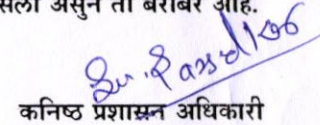 सला असुन तो बरोबर आहे.
कनिष्ठ प्रशासन अधिकारी